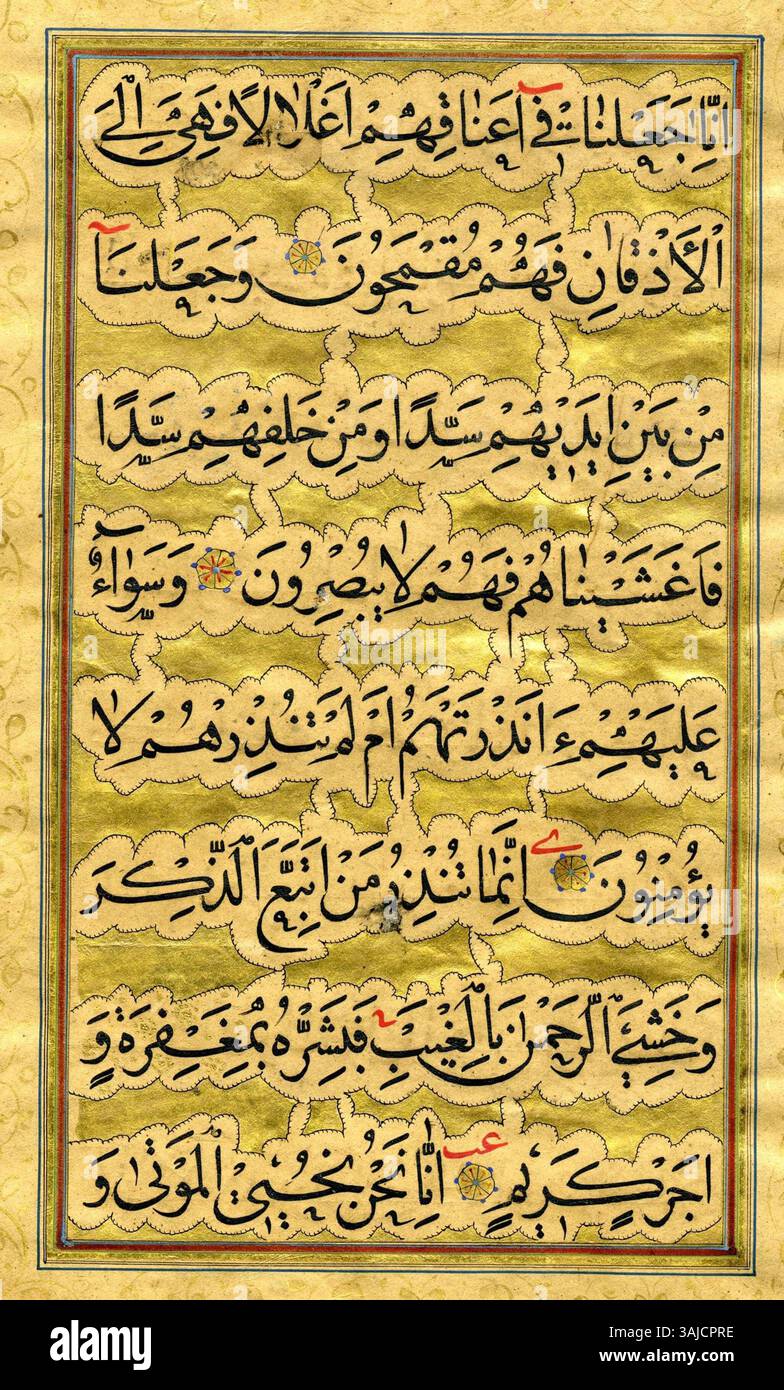 اِنَّا جَعَلْنَا فِٓى اَعْنَاقِهِمْ اَغْلَالًا فَهِىَ اِلَى
الْاَذْقَانِ فَهُمْ مُقْمَحُونَ وَجَعَلْنَآ
مِنْ بَيْنِ اَيْدِيهِمْ سَدًّا وَمِنْ خَلْفِهِمْ سَدًّا
فَاَغْشَيْنَاهُمْ فَهُمْ لَا يُبْصِرُونَ وَسَوَآءٌ
عَلَيْهِمْ ءَاَنْذَرْتَهُمْ اَمْ لَمْ تُنْذِرْهُمْ لَا
يُؤْمِنُونَ ے اِنَّمَا تُنْذِرُ مَنِ اتَّبَعَ الذِّكْرَ
وَخَشِىَ الرَّحْمٰنَ بِالْغَيْبِ فَبَشِّرْهُ بِمَغْفِرَةٍ وَ
اَجْرٍ كَرِيمٍ عب اِنَّا نَحْنُ نُحْيِى الْمَوْتٰى وَ
alamy
alamy
Image ID: 3AJCPRE
www.alamy.com